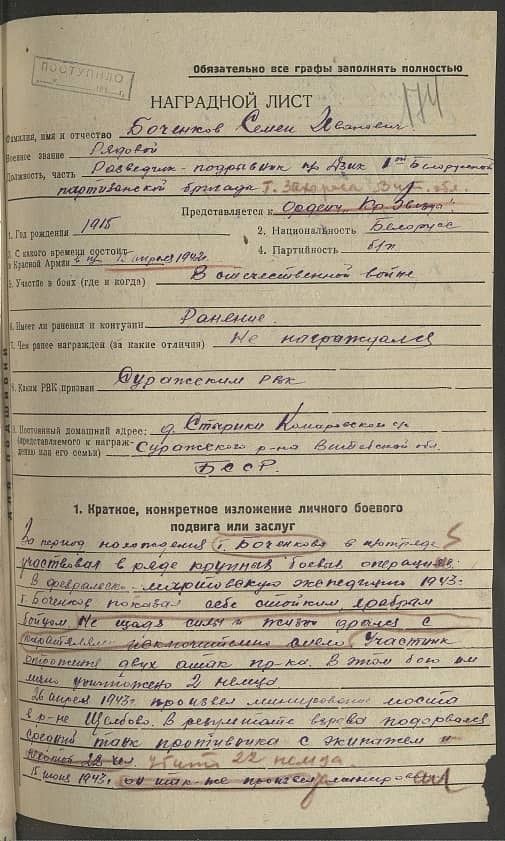 ПОСТУПИЛО
Обязательно все графы заполнять полностью
174
НАГРАДНОЙ ЛИСТ
Фамилия, имя и отчество Боченков Семен Иванович
Военное звание Рядовой
Должность, часть Разведчик-подрывник 1ой Белорусской
партизанской бригады
Представляется к Ордену "Кр. Звезда"
1. Год рождения 1915 2. Национальность Белорусс
3. С какого времени состоит 4. Партийность б/п
в Красной Армии апреля 1942г.
5. Участие в боях (где и когда) В отечественной войне
6. Имеет ли ранения и контузии Ранение
7. Чем ранее награжден (за какие отличия) Не награждался
8. Каким РВК призван Суражским РВК
9. Постоянный домашний адрес: д. Старики Комаровского с/с
(представляемого к награж- Суражского р-на Витебской обл.
дению или его семьи) БССР.
для подшивки
1. Краткое, конкретное изложение личного боевого
подвига или заслуг
За период нахождения т. Боченкова в отряде
участвовал в ряде крупных боевых операциях.
В февральско-мартовскую экспедицию 1943г.
т. Боченков показал себя стойким, храбрым
бойцом. Не щадя силы и жизни дрался с
карателями исключительно смело. Участник
отражения двух атак пр-ка. В этом бою им
лично уничтожено 2 немца
26 апреля 1943г. произвел минирование моста
в р-не Щелбово. В результате взрыва подорвался
средний танк противника с экипажем и
убито 22 немца.
15 июня 1943г. он так же произвел минирован